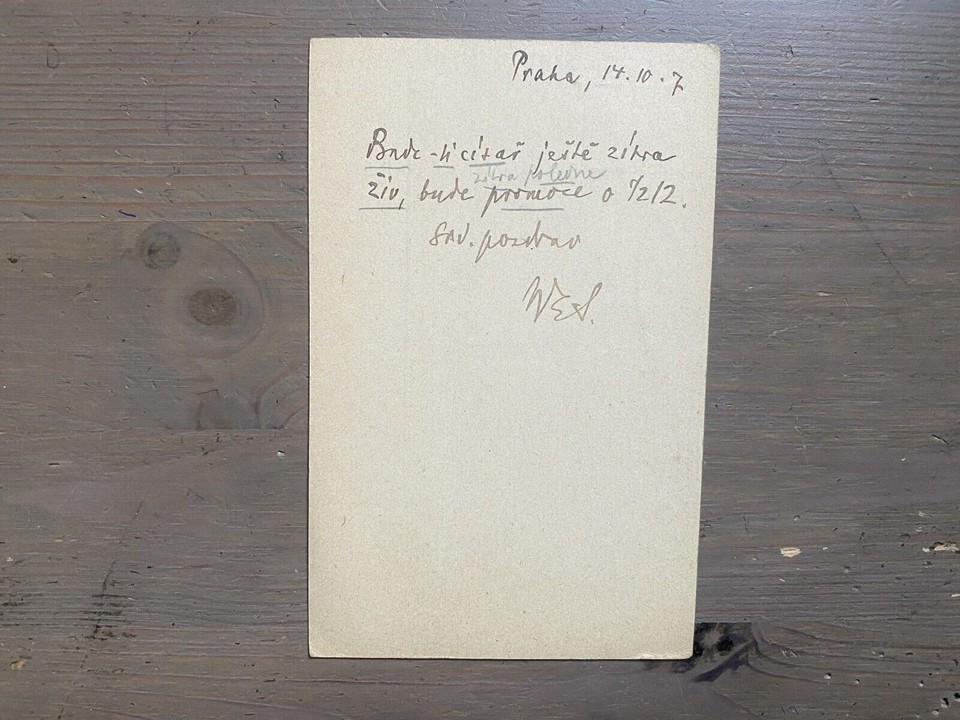 Praha, 14.10.7
Bude-li císař ještě zítra
zítra poledne
živ, bude promoce o ½12.
Srd. pozdrav